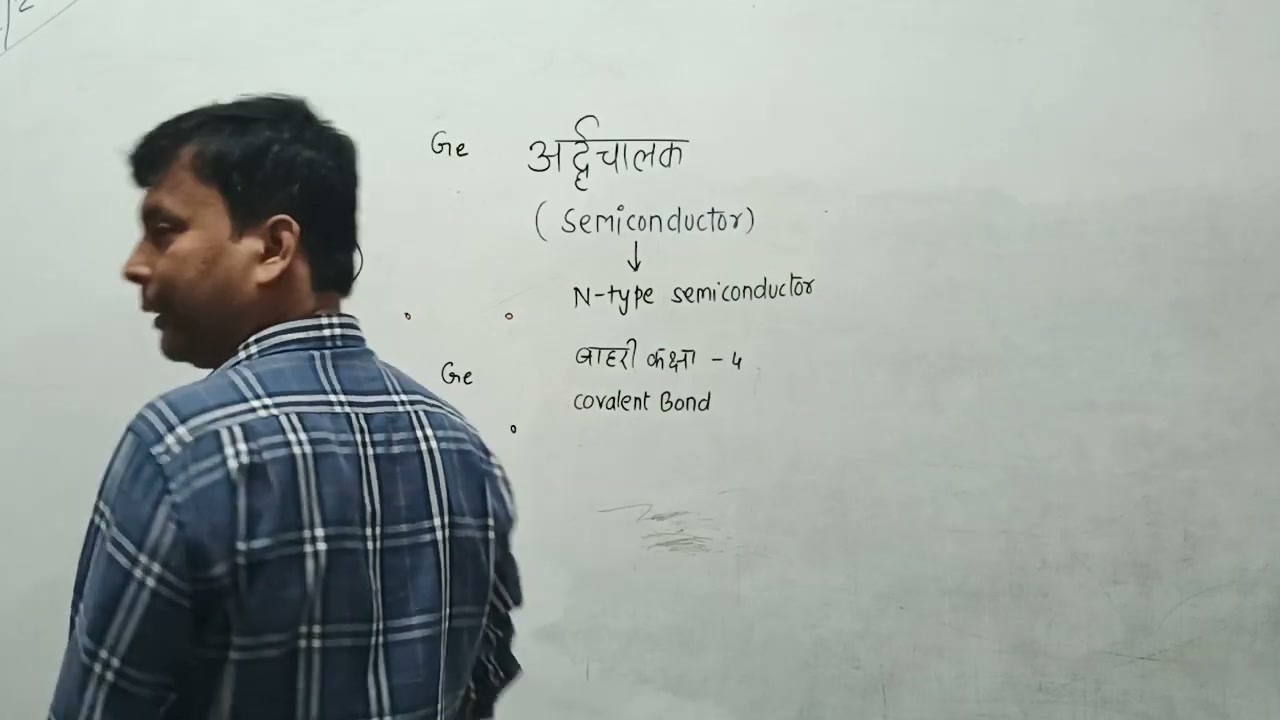 Ge अर्द्धचालक
(semiconductor)
↓
N-type semiconductor
बाहरी कक्षा - 4
Ge
covalent Bond